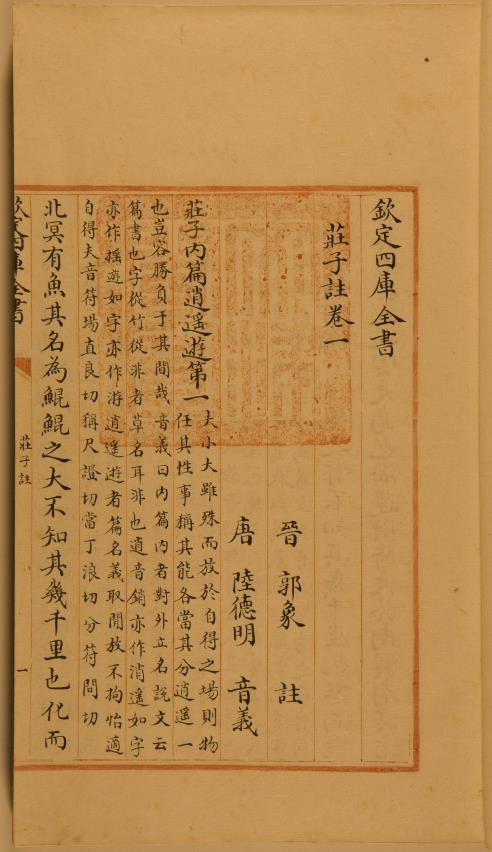 欽定四庫全書
莊子註卷一
晉 郭象 註
唐 陸德明 音義
莊子內篇逍遙遊第一
夫小大雖殊而放於自得之場則物
任其性事稱其能各當其分逍遙一
也豈容勝負于其間哉音義曰內篇內者對外立名說文云
篇書也字從竹從非者草名耳非也逍音銷亦作消遙如字
亦作搖遊如字亦作游逍遙遊者篇名義取閒放不拘怡適
自得夫音符場直良切稱尺證切當丁浪切分符問切
北冥有魚其名為鯤鯤之大不知其幾千里也化而
欽定四庫全書
莊子註
一